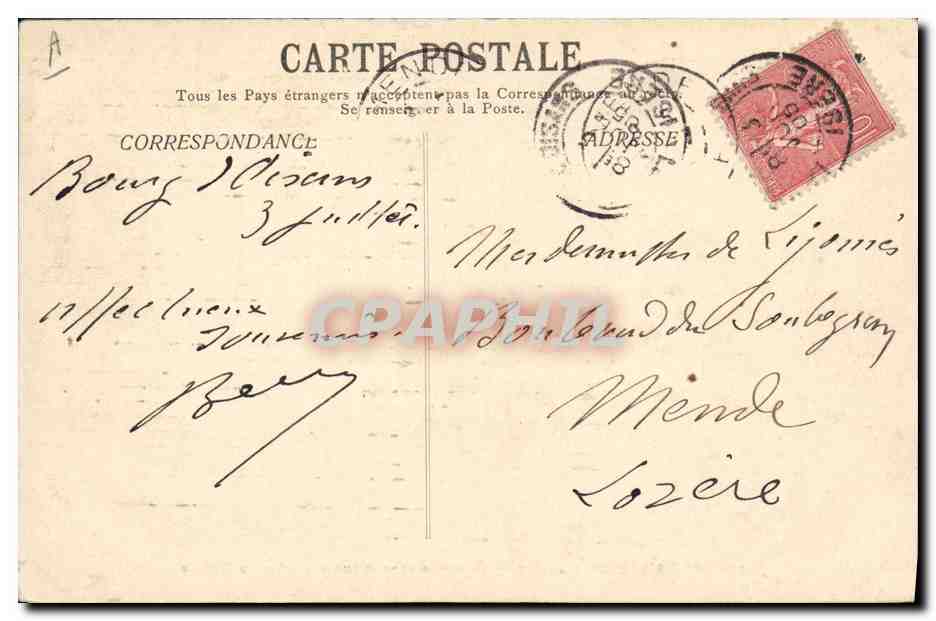 A
CARTE POSTALE
Tous les Pays étrangers n'acceptent pas la Correspondance au recto.
Se renseigner à la Poste.
CORRESPONDANCE
ADRESSE
Bourg d'Oisans
3 Juillet.
affectueux
souvenirs.
Mesdemoiselles de Ligonnès
Boulevard du Soubeyran
Mende
Lozère
CPAPHIL
MENDE
OISANS
ISERE
ISERE
10